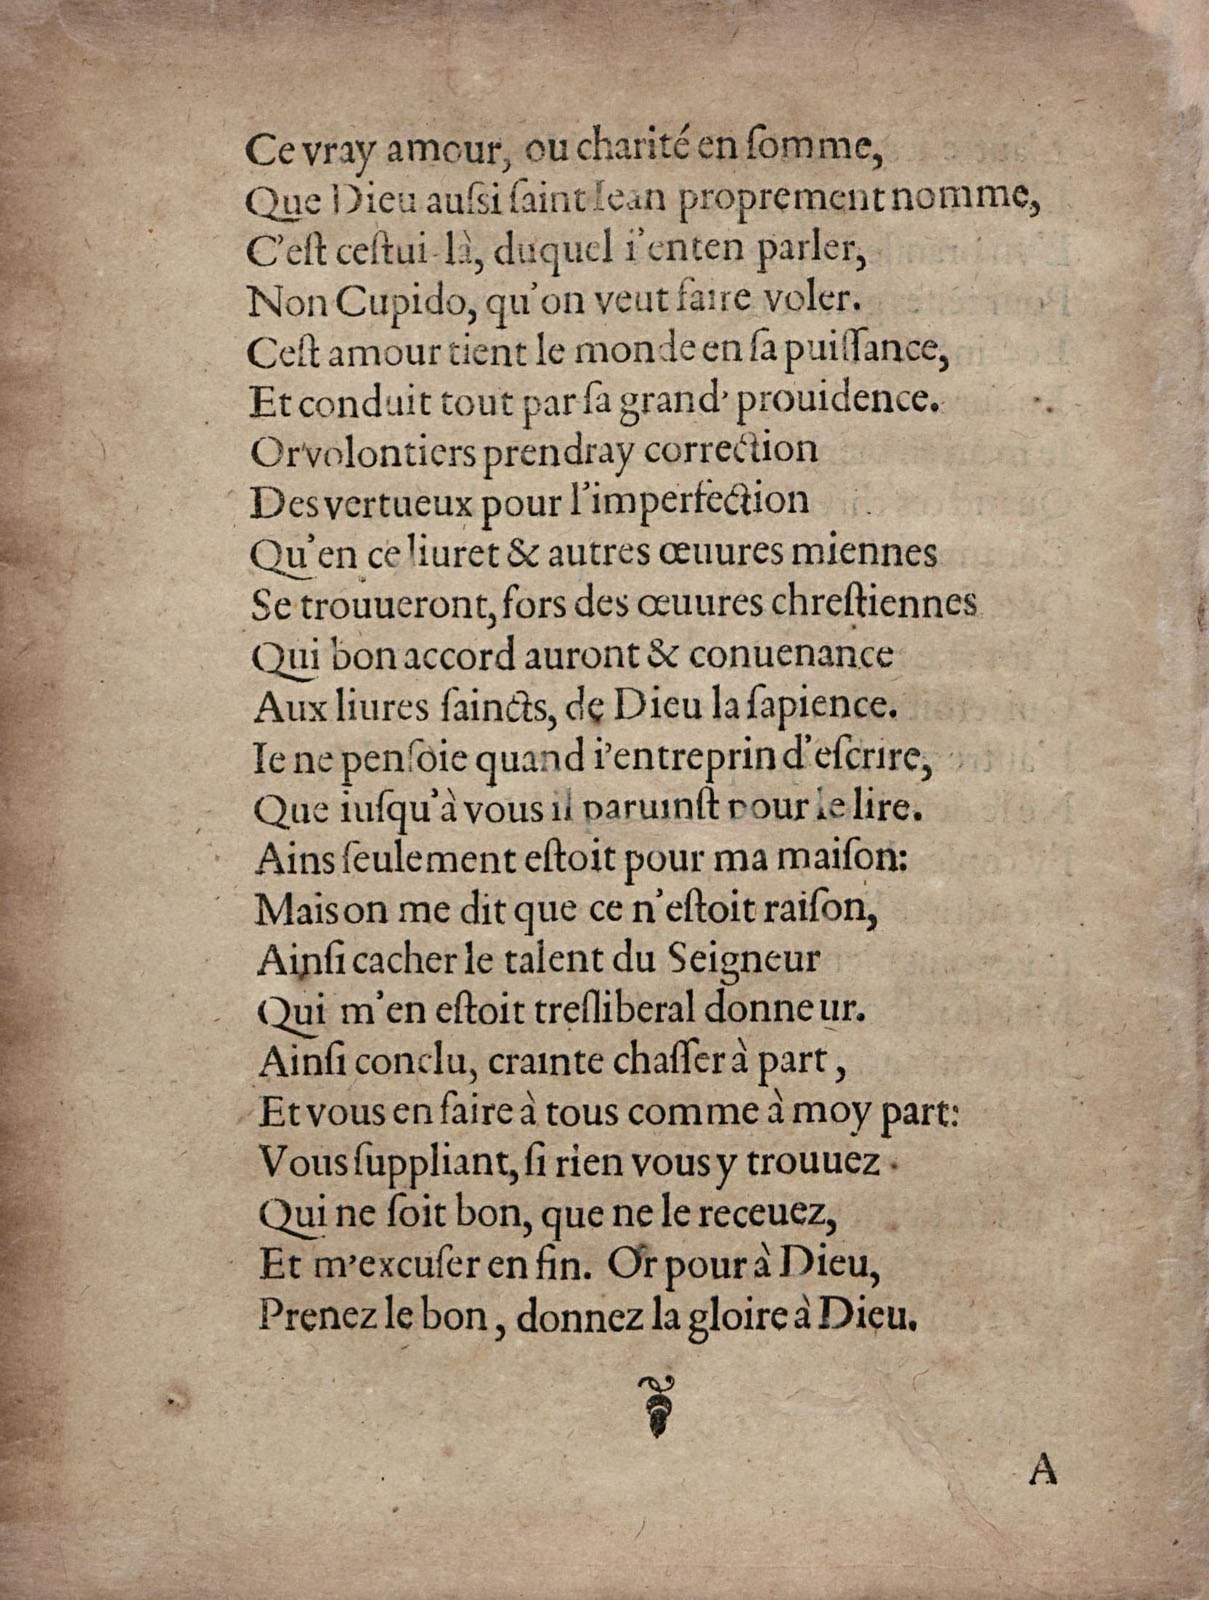 Ce vray amour, ou charité en ſomme,
Que Dieu auſsi ſaint Iean proprement nomme,
C'eſt ceſtui-là, duquel i'enten parler,
Non Cupido, qu'on veut faire voler.
Ceſt amour tient le monde en ſa puiſſance,
Et conduit tout par ſa grand' prouidence.
Or volontiers prendray correction
Des vertueux pour l'imperfection
Qu'en ce liuret & autres œuures miennes
Se trouueront, fors des œuures chreſtiennes
Qui bon accord auront & conuenance
Aux liures ſaincts, de Dieu la ſapience.
Ie ne penſoie quand i'entreprin d'eſcrire,
Que iuſqu'à vous il paruinſt pour le lire.
Ains ſeulement eſtoit pour ma maiſon:
Mais on me dit que ce n'eſtoit raiſon,
Ainſi cacher le talent du Seigneur
Qui m'en eſtoit treſliberal donneur.
Ainſi conclu, crainte chaſſer à part,
Et vous en faire à tous comme à moy part:
Vous ſuppliant, ſi rien vous y trouuez
Qui ne ſoit bon, que ne le receuez,
Et m'excuſer en fin. Or pour à Dieu,
Prenez le bon, donnez la gloire à Dieu.
A